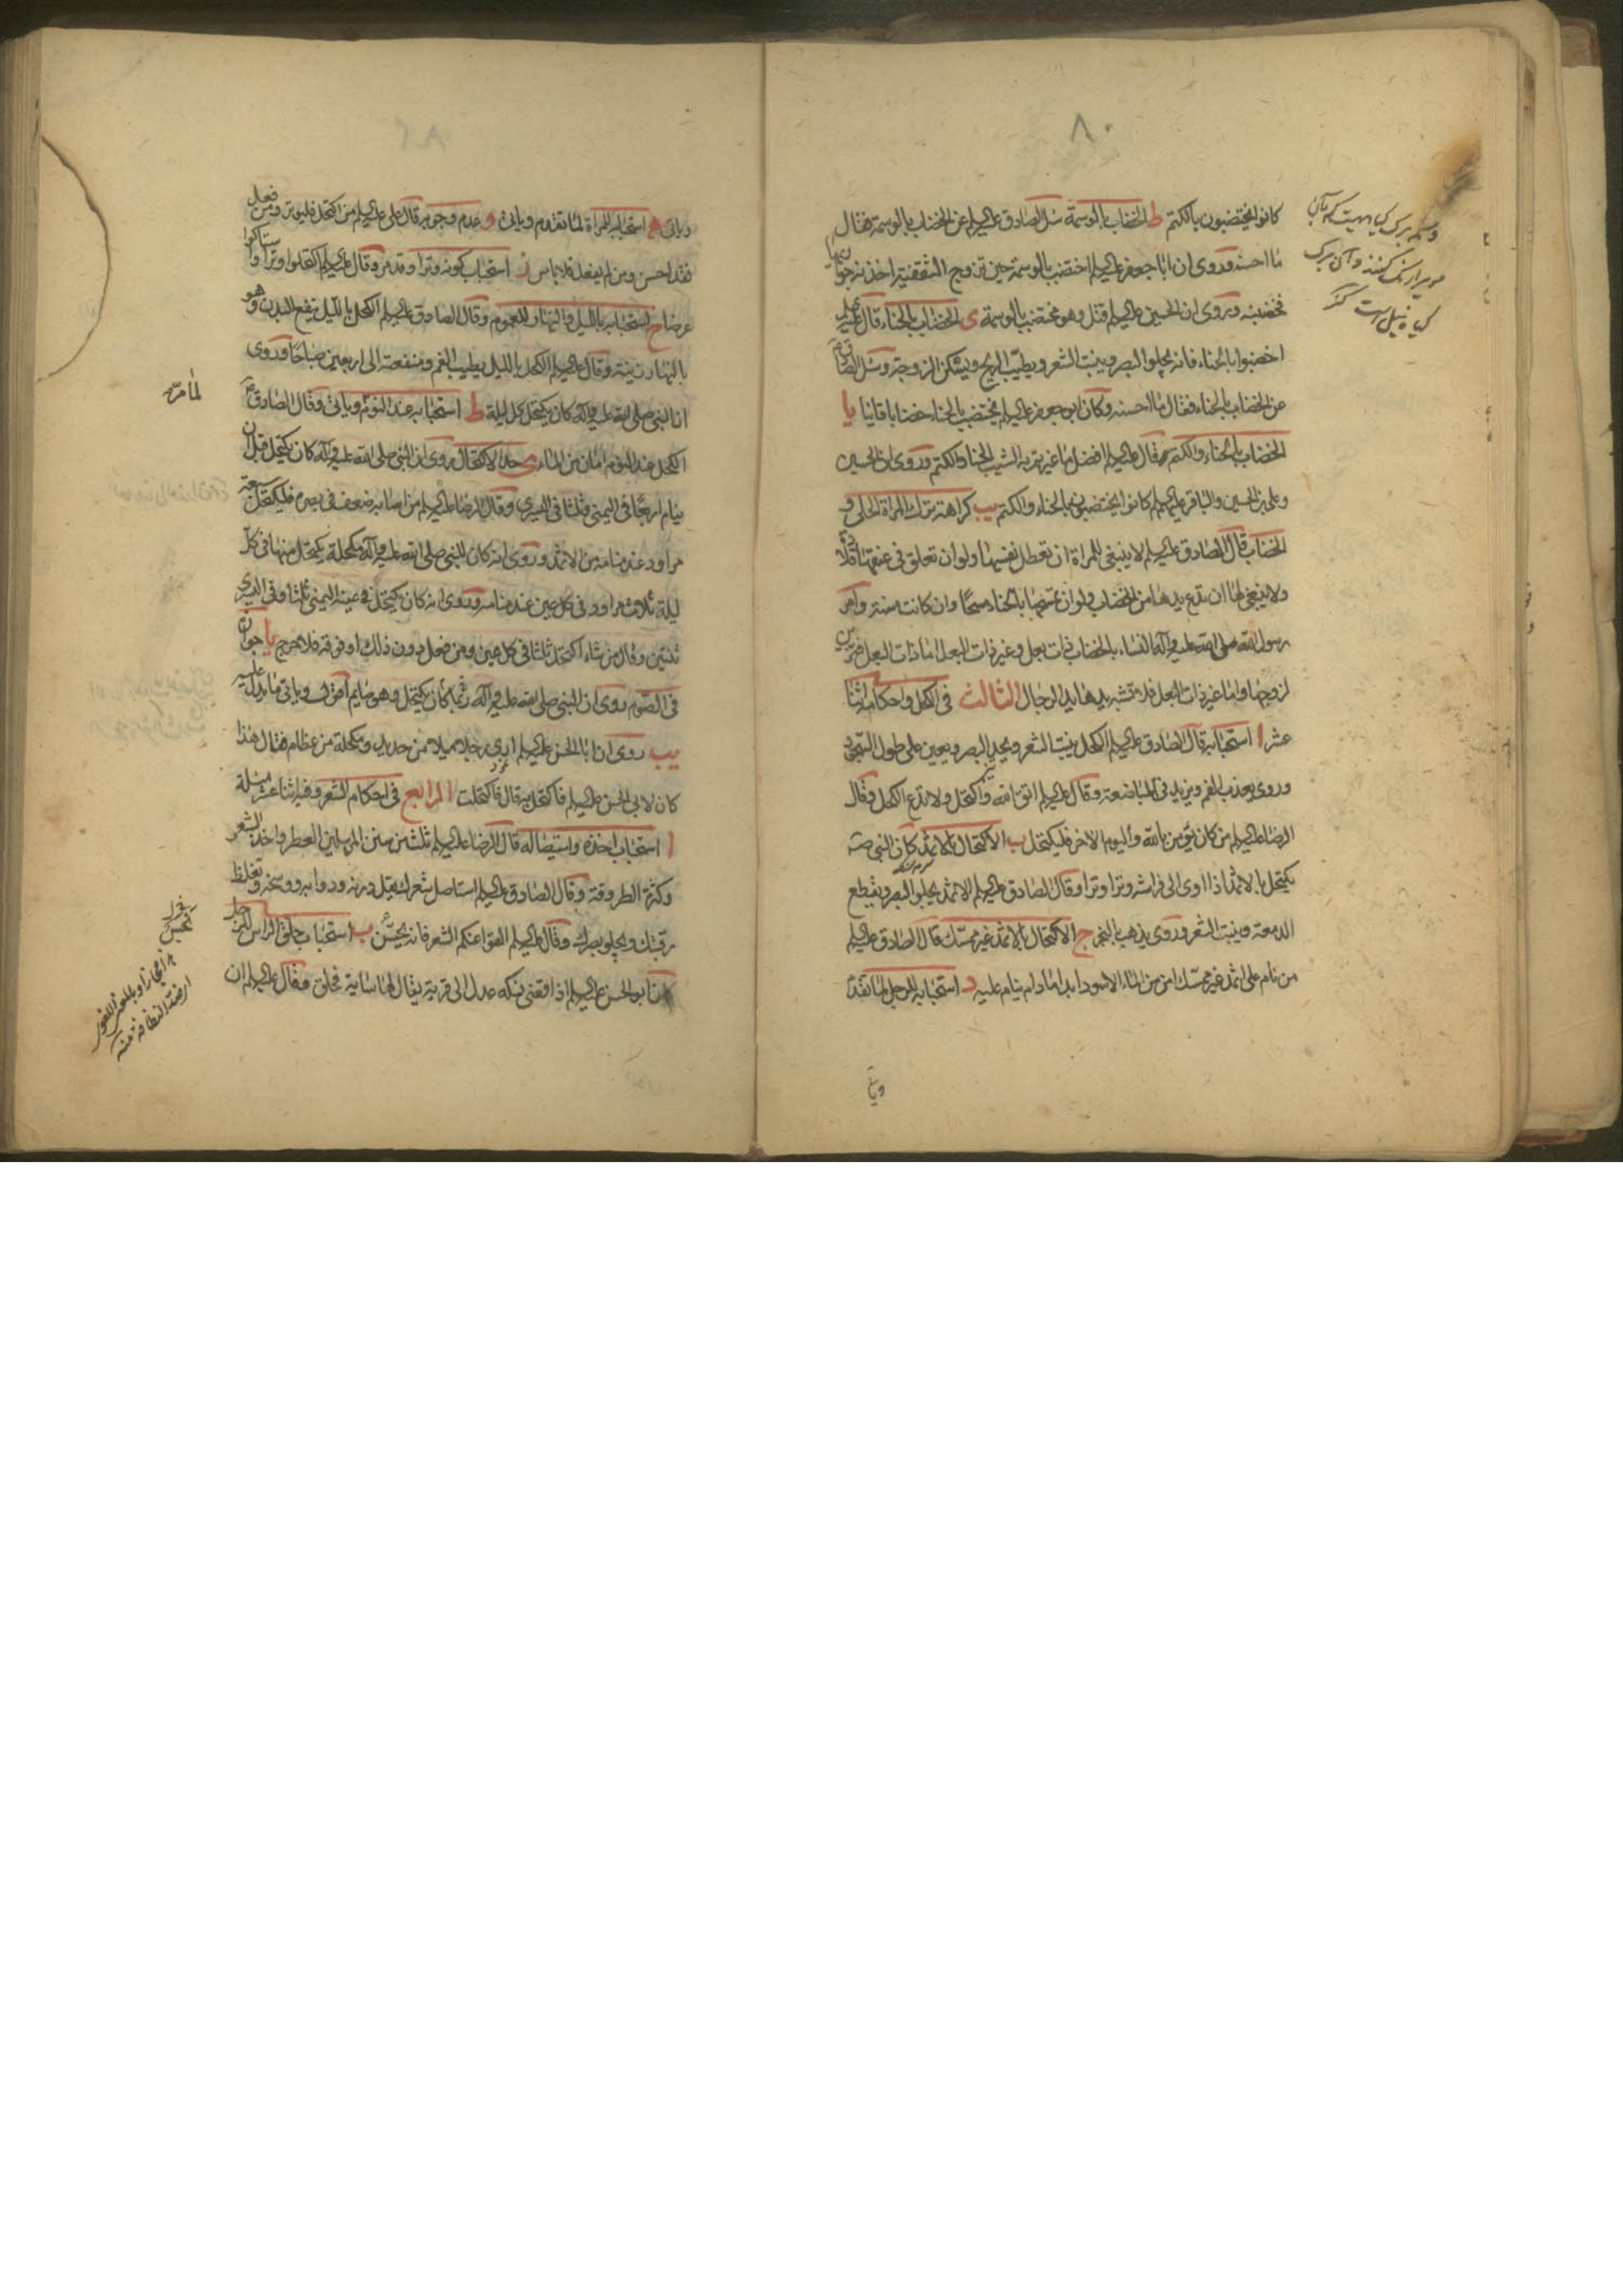 ٨٠
كانوا يختضبون بالكتم ط الخضاب بالوسمة سئل الصادق عليه السلم عن الخضاب بالوسمة فقال
ما احسنه وروى ان ابا جعفر عليه السلم اختضب بالوسمة حين تزوج الثقفية اخذنه جواريها
فخضبنه وروى ان الحسين عليه السلم قتل وهو مختضب بالوسمة ى الخضاب بالحناء قال عليه السلم
اخضبوا بالحناء فانه يجلو البصر وينبت الشعر ويطيب الريح ويسكن الزوجة وسئل الصادق
عن الخضاب بالحناء فقال ما احسنه وكان ابو جعفر عليه السلم يختضب بالحناء خضابا قانيا يا
الخضاب بالحناء والكتم قال عليه السلم افضل ما غيرتم به الشيب الحنا والكتم وروى ان الحسين
وعلى بن الحسين والباقر عليهم السلم كانوا يختضبون بالحناء والكتم يب كراهة ترك المراة الحلى و
الخضاب قال الصادق عليه السلم لا ينبغى للمراة ان تعطل نفسها ولو ان تعلق فى عنقها قلادة
ولا ينبغى لها ان تدع يدها من الخضاب ولو ان تمسها بالحناء مسحا وان كانت مسنة وامر
رسول الله صلى الله عليه وآله النساء بالخضاب ذات بعل وغير ذات البعل اما ذات البعل فتزين
لزوجها واما غير ذات البعل فلا تشبه يدها يد الرجال الثالث فى الكحل واحكامه اثنا
عشر ا استحبابه قال الصادق عليه السلم الكحل ينبت الشعر ويحد البصر ويعين على طول السجود
وروى يعذب الفم ويزيد فى المباضعة وقال عليه السلم اتق الله واكتحل ولا تدع الكحل وقال
الرضا عليه السلم من كان يؤمن بالله واليوم الاخر فليكتحل ب الاكتحال بالاثمد كان النبى ص
يكتحل بالاثمد اذا اوى الى فراشه وترا وترا وقال الصادق عليه السلم الاثمد يجلو البصر ويقطع
الدمعة وينبت الشعر وروى يذهب بالبخر ج الاكتحال بالاثمد غير ممسك قال الصادق عليه السلم
من نام على اثمد غير ممسك امن من الماء الاسود ابدا ما دام ينام عليه د استحبابه للرجل لما تقدم
ويا
وسمه برک کیاهیست که بآن
موی را رنک کنند و آن برک
کیاه نیل است کنز
وياتى ه استحبابه للمراة لما تقدم وياتى و عدم وجوبه قال على عليه السلم من اكتحل فليوتر ومن فعل
فقد احسن ومن لم يفعل فلا باس ز استحباب كونه وترا وقد مر وقال عليه السلم اكتحلوا وترا واستاكوا
عرضا ح استحبابه بالليل والنهار للعموم وقال الصادق عليه السلم الكحل بالليل ينفع البدن وهو
بالنهار زينة وقال عليه السلم الكحل بالليل يطيب الفم ومنفعته الى اربعين صباحا وروى
ان النبى صلى الله عليه وآله كان يكتحل كل ليلة ط استحبابه عند النوم وياتى وقال الصادق ع
الكحل عند النوم امان من الماء ى حد الاكتحال روى ان النبى صلى الله عليه وآله كان يكتحل قبل ان
ينام اربعا فى اليمنى وثلثا فى اليسرى وقال الرضا عليه السلم من اصابه ضعف فى بصره فليكتحل سبعة
مراود عند منامه من الاثمد وروى انه كان للنبى صلى الله عليه وآله مكحلة يكتحل منها فى كل
ليلة ثلاث مراود فى كل عين عند منامه وروى انه كان يكتحل فى عينه اليمنى ثلثا وفى اليسرى
ثنتين وقال من شاء اكتحل ثلثا فى كل عين ومن فعل دون ذلك او فوقه فلا حرج يا جوازه
فى الصوم روى ان النبى صلى الله عليه وآله ربما كان يكتحل وهو صايم اقول وياتى ما يدل عليه
يب روى ان ابا الحسن عليه السلم ارى رجلا ميلا من حديد ومكحلة من عظام فقال هذا
كان لابى الحسن عليه السلم فاكتحل به قال فاكتحلت الرابع فى احكام الشعر وفيه اثنا عشر مسئلة
ا استحباب اخذه واستيصاله قال الرضا عليه السلم ثلث من سنن المرسلين العطر واخذ الشعر
وكثرة الطروقة وقال الصادق عليه السلم استاصل شعرك يقل درنه ودوابه ووسخه وتغلظ
رقبتك ويجلو بصرك وقال عليه السلم القوا عنكم الشعر فانه يحسن ب استحباب حلق الراس للرجل
كان ابو الحسن عليه السلم اذا قضى نسكه عدل الى قرية يقال لها ساية فحلق وقال عليه السلم ان
لما مر منه